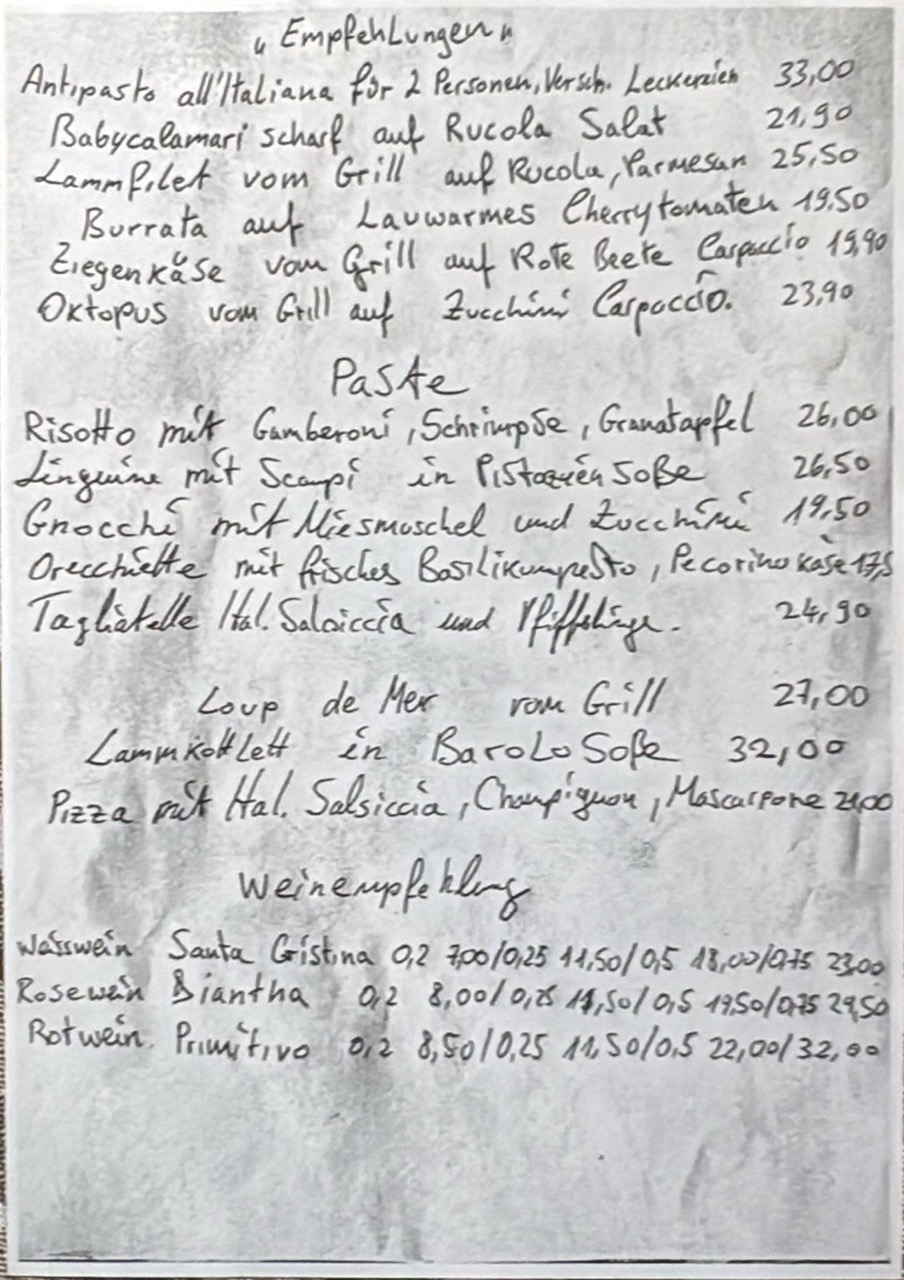 „ Empfehlungen "
Antipasto all'Italiana für 2 Personen, Versch. Leckereien 33,00
Babycalamari scharf auf Rucola Salat 21,90
Lammfilet vom Grill auf Rucola, Parmesan 25,50
Burrata auf Lauwarmes Cherrytomaten 19,50
Ziegenkäse vom Grill auf Rote Beete Carpaccio 19,90
Oktopus vom Grill auf Zucchini Carpaccio. 23,90
Paste
Risotto mit Gamberoni, Schrimpse, Granatapfel 26,00
Linguine mit Scampi in Pistazien Soße 26,50
Gnocchi mit Miesmuschel und Zucchini 19,50
Orecchiette mit frisches Basilikumpesto, Pecorino Käse 17,5
Tagliatelle Ital. Salsiccia und Pfifferlinge. 24,90
Loup de Mer vom Grill 27,00
Lammkottlett in Barolo Soße 32,00
Pizza mit Ital. Salsiccia, Champignon, Mascarpone 21,00
Weinempfehlung
Weisswein Santa Cristina 0,2 7,00/0,25 11,50/0,5 18,00/0,75 23,00
Rosewein Diantha 0,2 8,00/0,25 11,50/0,5 19,50/0,75 29,50
Rotwein. Primitivo 0,2 8,50/0,25 11,50/0,5 22,00/32,00